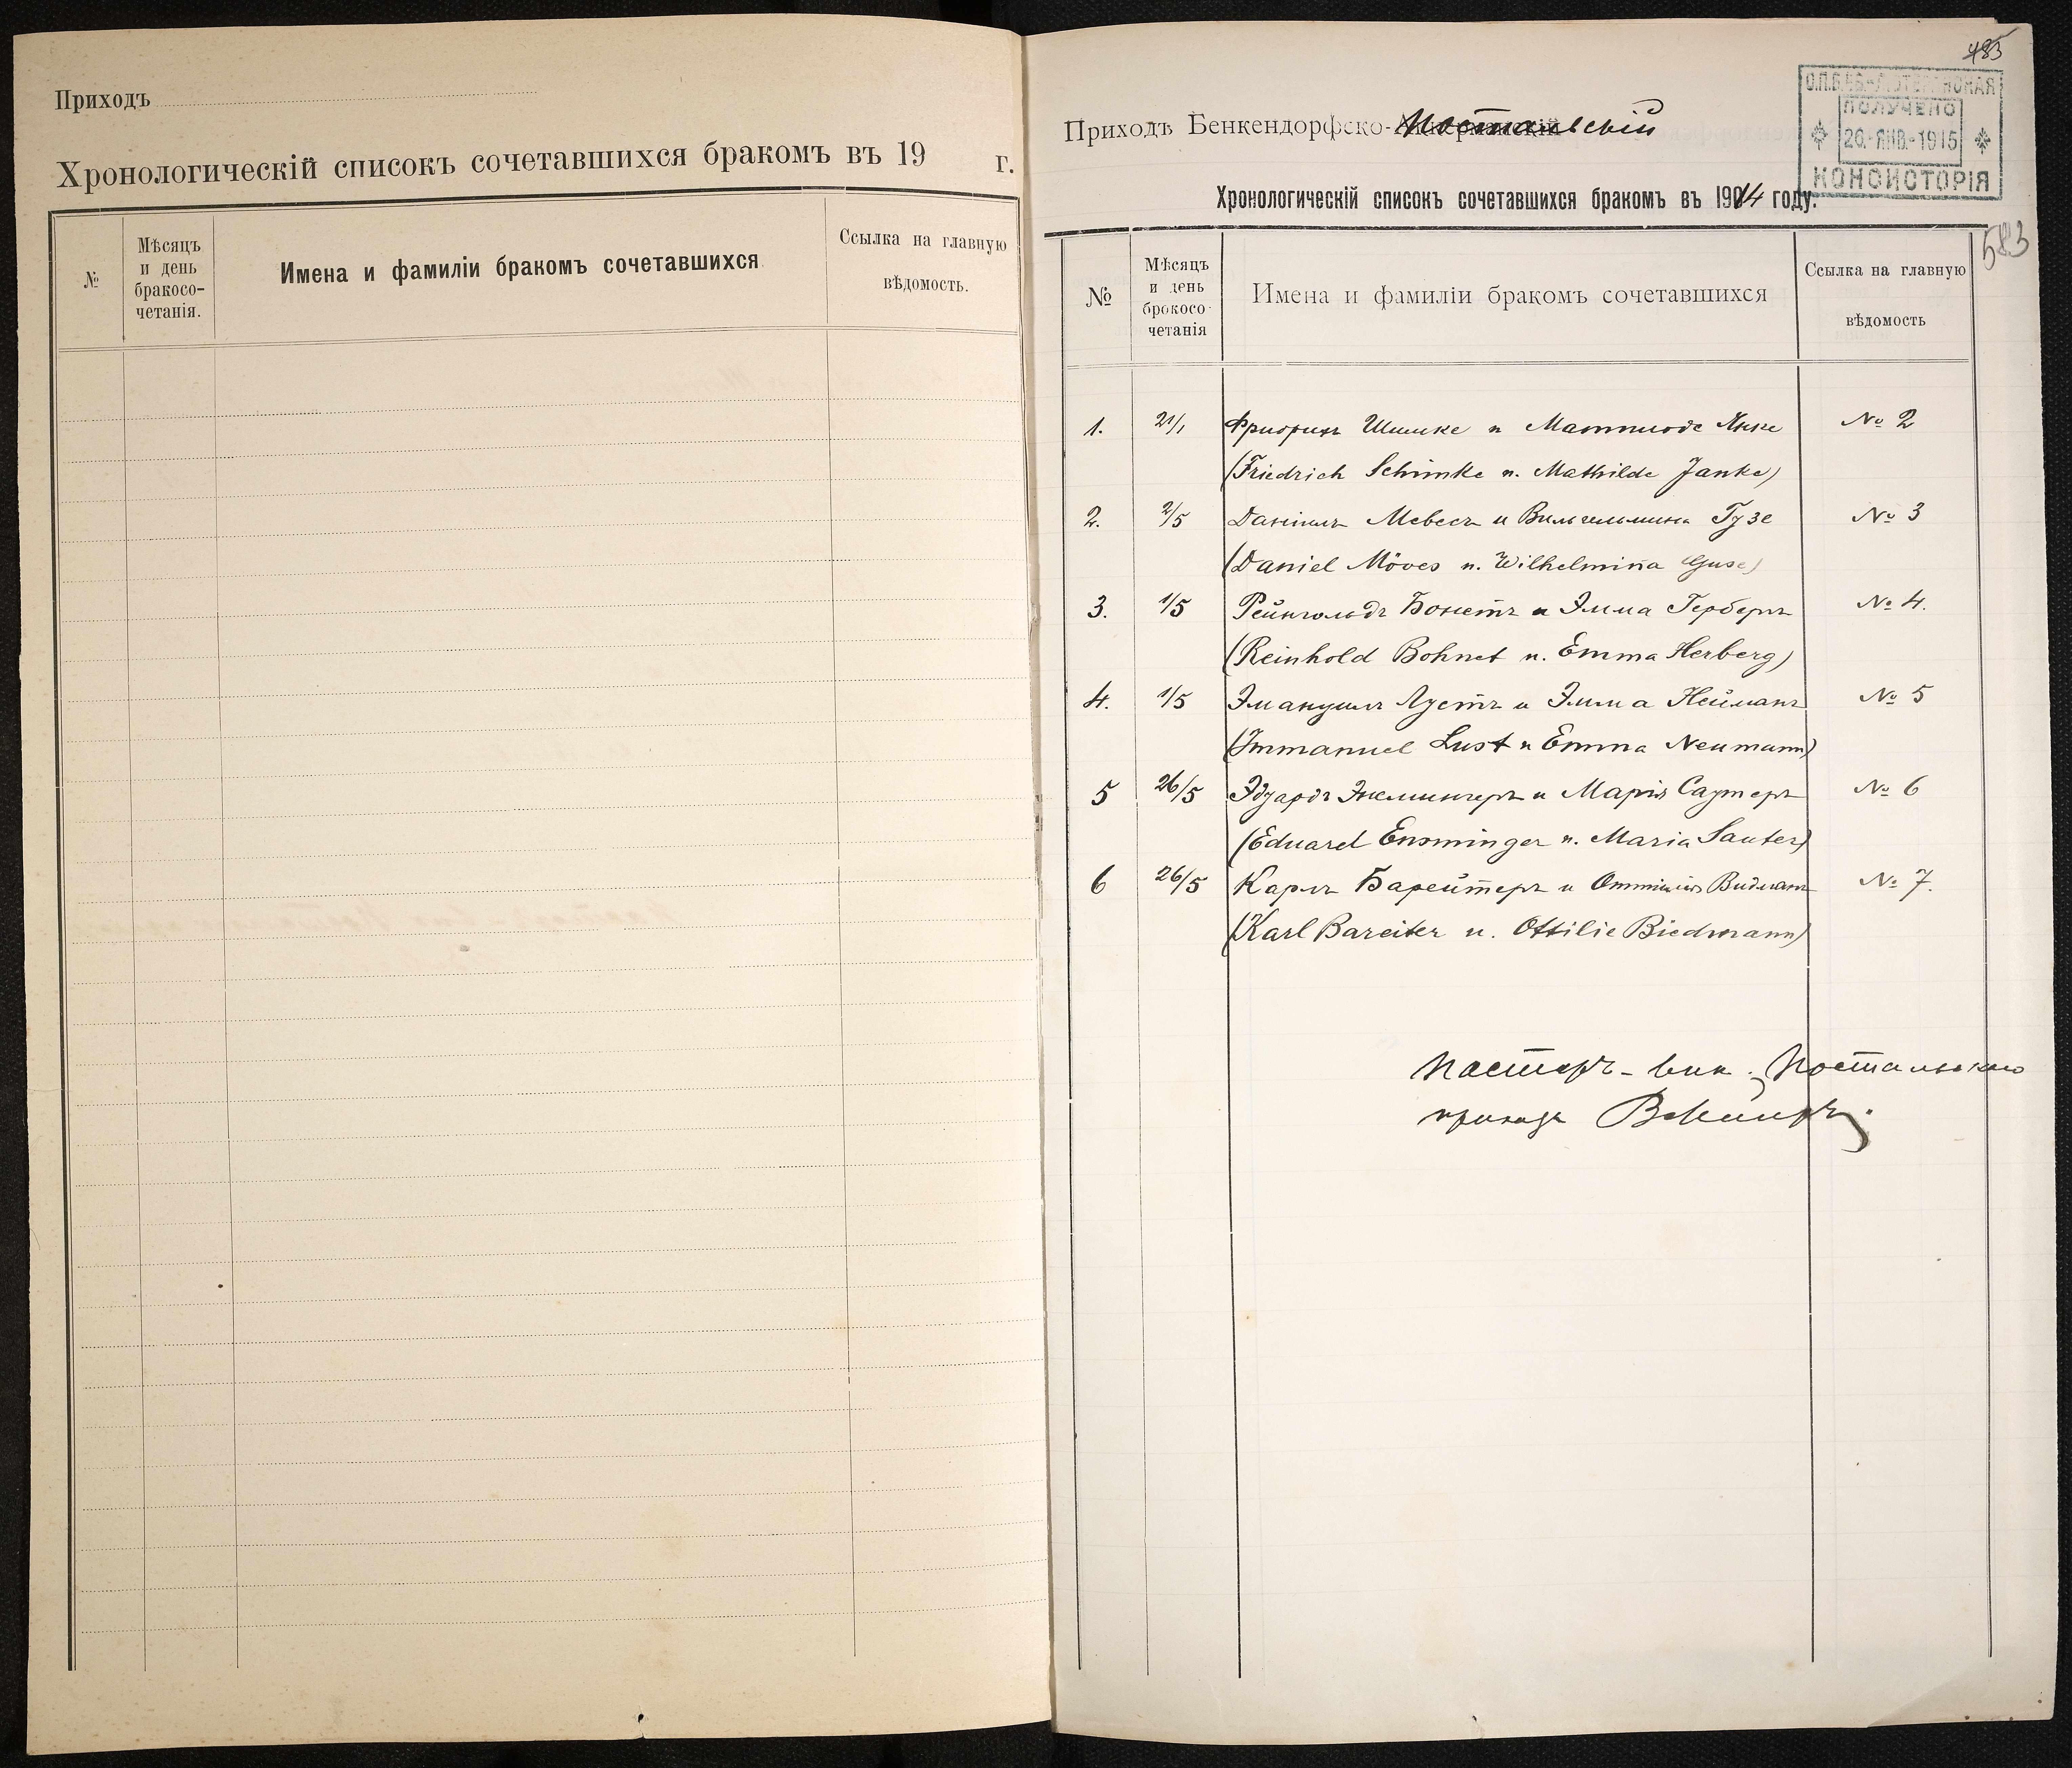 Приходъ
Хронологическій списокъ сочетавшихся бракомъ въ 19 г.
№
Мѣсяцъ
и день
бракосо-
четанія.
Имена и фамиліи бракомъ сочетавшихся
Ссылка на главную
вѣдомость.
485
С.П.Б. ЕВ.-ЛЮТЕРАНСКАЯ
ПОЛУЧЕНО
26.-ЯНВ.-1915
КОНСИСТОРІЯ
Приходъ Бенкендорфско-Постальскій
Хронологическій списокъ сочетавшихся бракомъ въ 1914 году.
583
№
Мѣсяцъ
и день
брокосо-
четанія
Имена и фамиліи бракомъ сочетавшихся
Ссылка на главную
вѣдомость
1. 21/1 Фридрихъ Шимке и Матильде Янке № 2
(Friedrich Schimke u. Mathilde Janke)
2. 2/5 Даніилъ Мевесъ и Вильгельмина Гузе № 3
(Daniel Möves u. Wilhelmina Guse)
3. 1/5 Рейнгольдъ Бонетъ и Эмма Герберъ № 4.
(Reinhold Bohnet u. Emma Herberg)
4. 1/5 Эмануилъ Лустъ и Эмма Нейманъ № 5
(Immanuel Lust u Emma Neumann)
5 26/5 Эдуардъ Энсмингеръ и Марія Саутеръ № 6
(Eduard Ensminger u. Maria Sauter)
6 26/5 Карлъ Барейтеръ и Оттилія Видманъ № 7.
(Karl Bareiter u. Ottilie Biedmann)
Пасторъ-вик. Постальскаго
прихода